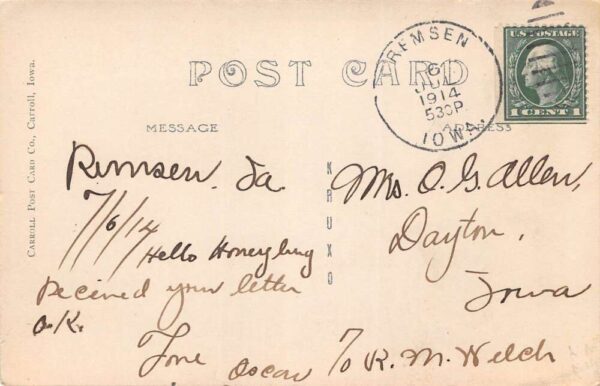 POST CARD
CARROLL POST CARD CO., Carroll, Iowa.
MESSAGE
ADDRESS
REMSEN
6
1914
530P
IOWA.
U.S. POSTAGE
1 CENT 1
KRUXO
Remsen. Ia.
7/6/14
Hello Honeybug
Recieved your letter
O.K.
Love
Oscar
Mrs. O. G. Allen,
Dayton,
Iowa
% R. M. Welch